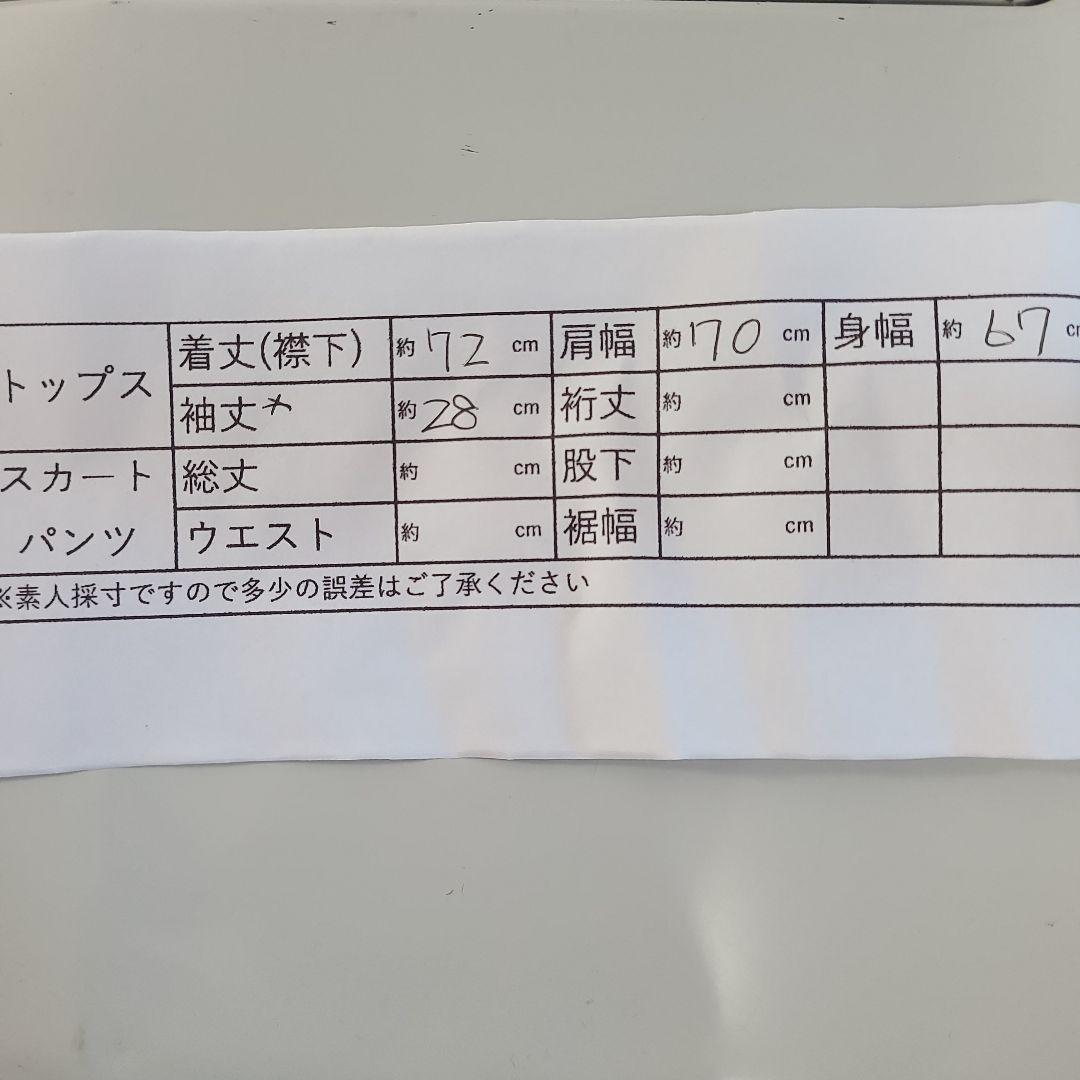 トップス 着丈(襟下) 約 72 cm 肩幅 約 70 cm 身幅 約 67 cm
袖丈* 約 28 cm 裄丈 約 cm
スカート 総丈 約 cm 股下 約 cm
パンツ ウエスト 約 cm 裾幅 約 cm
※素人採寸ですので多少の誤差はご了承ください